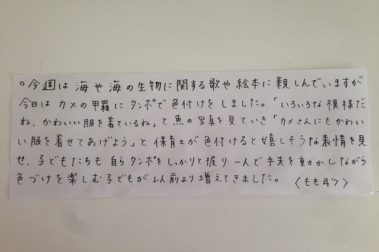 ○今週は海や海の生物に関する歌や絵本に親しんでいますが
今日はカメの甲羅にタンポで色付けをしました。「いろいろな模様だ
ね、かわいい服を着ているね」と魚の写真を見ていき「カメさんにもかわい
い服を着せてあげよう」と保育士が色付けると嬉しそうな表情を見
せ、子どもたちも自らタンポをしっかりと握り一人で手先を動かしながら
色づけを楽しむ子どもが以前より増えてきました。〈もも